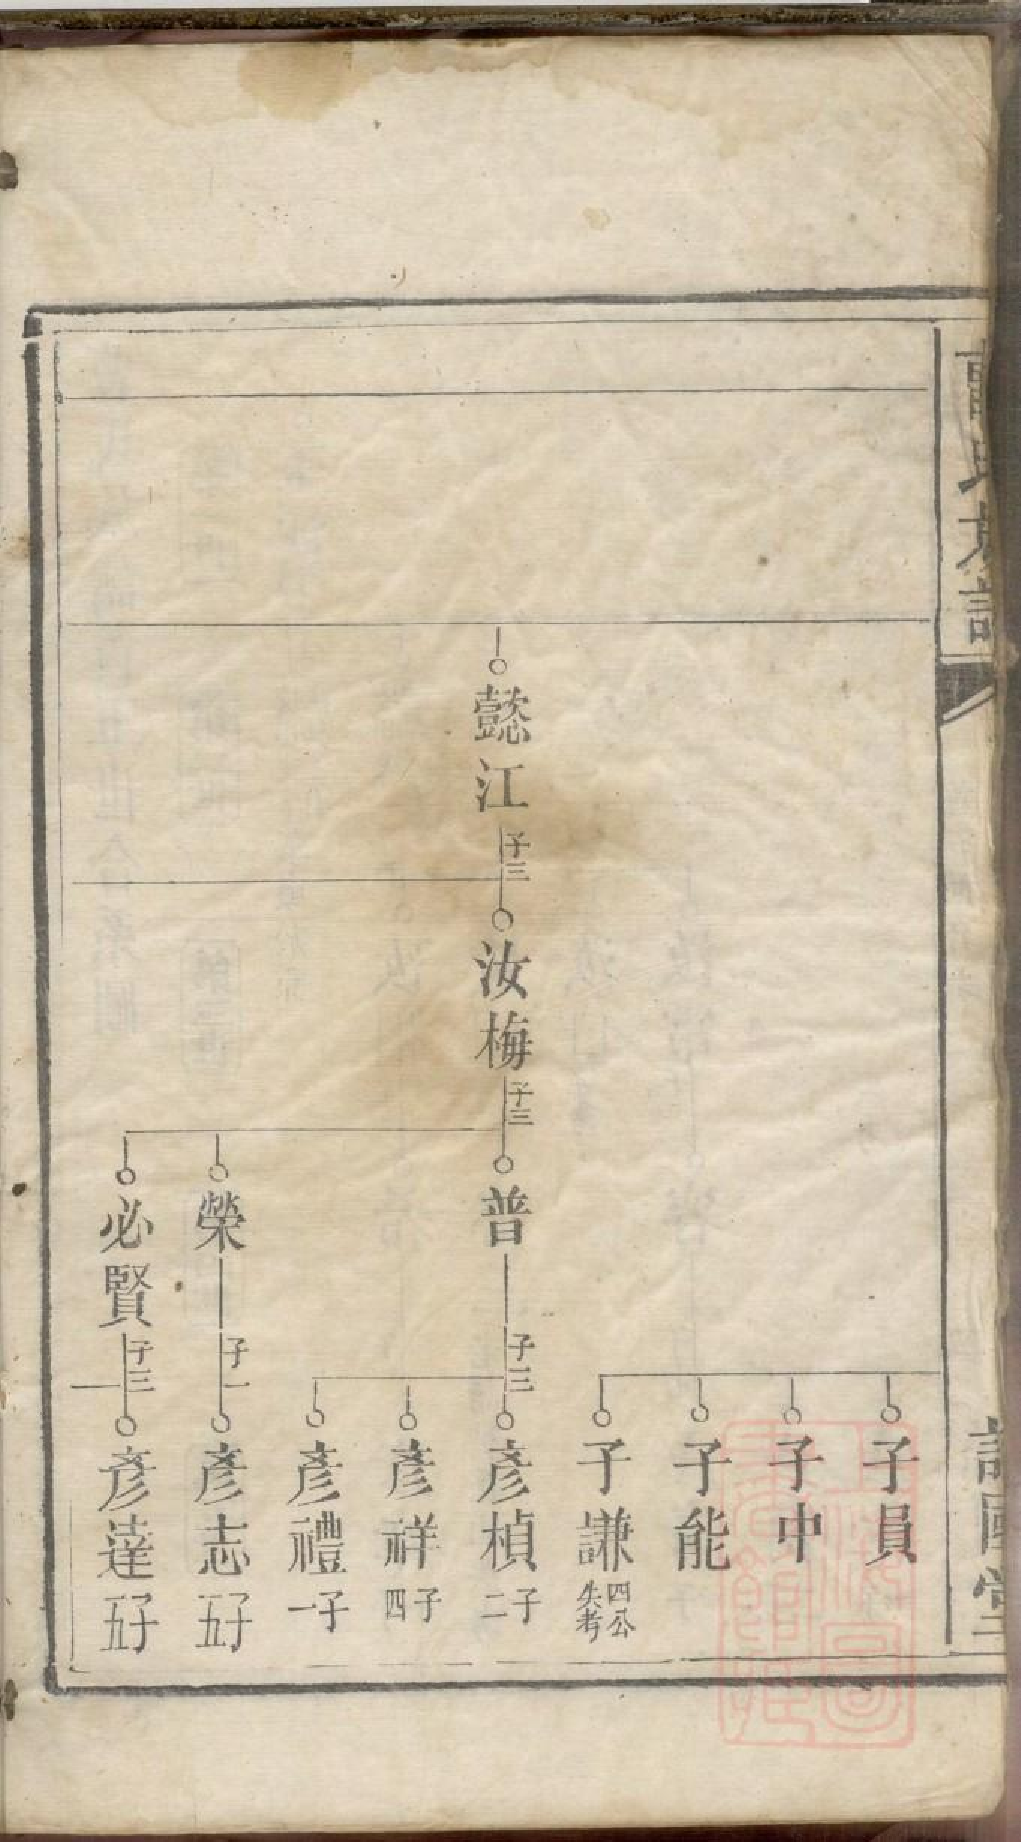 懿江
子三
汝梅
子三
普
子三
榮
子一
必賢
子三
子員
子中
子能
子謙 四公失考
彥楨 子二
彥祥 子四
彥禮 子一
彥志 子五
彥達 子五